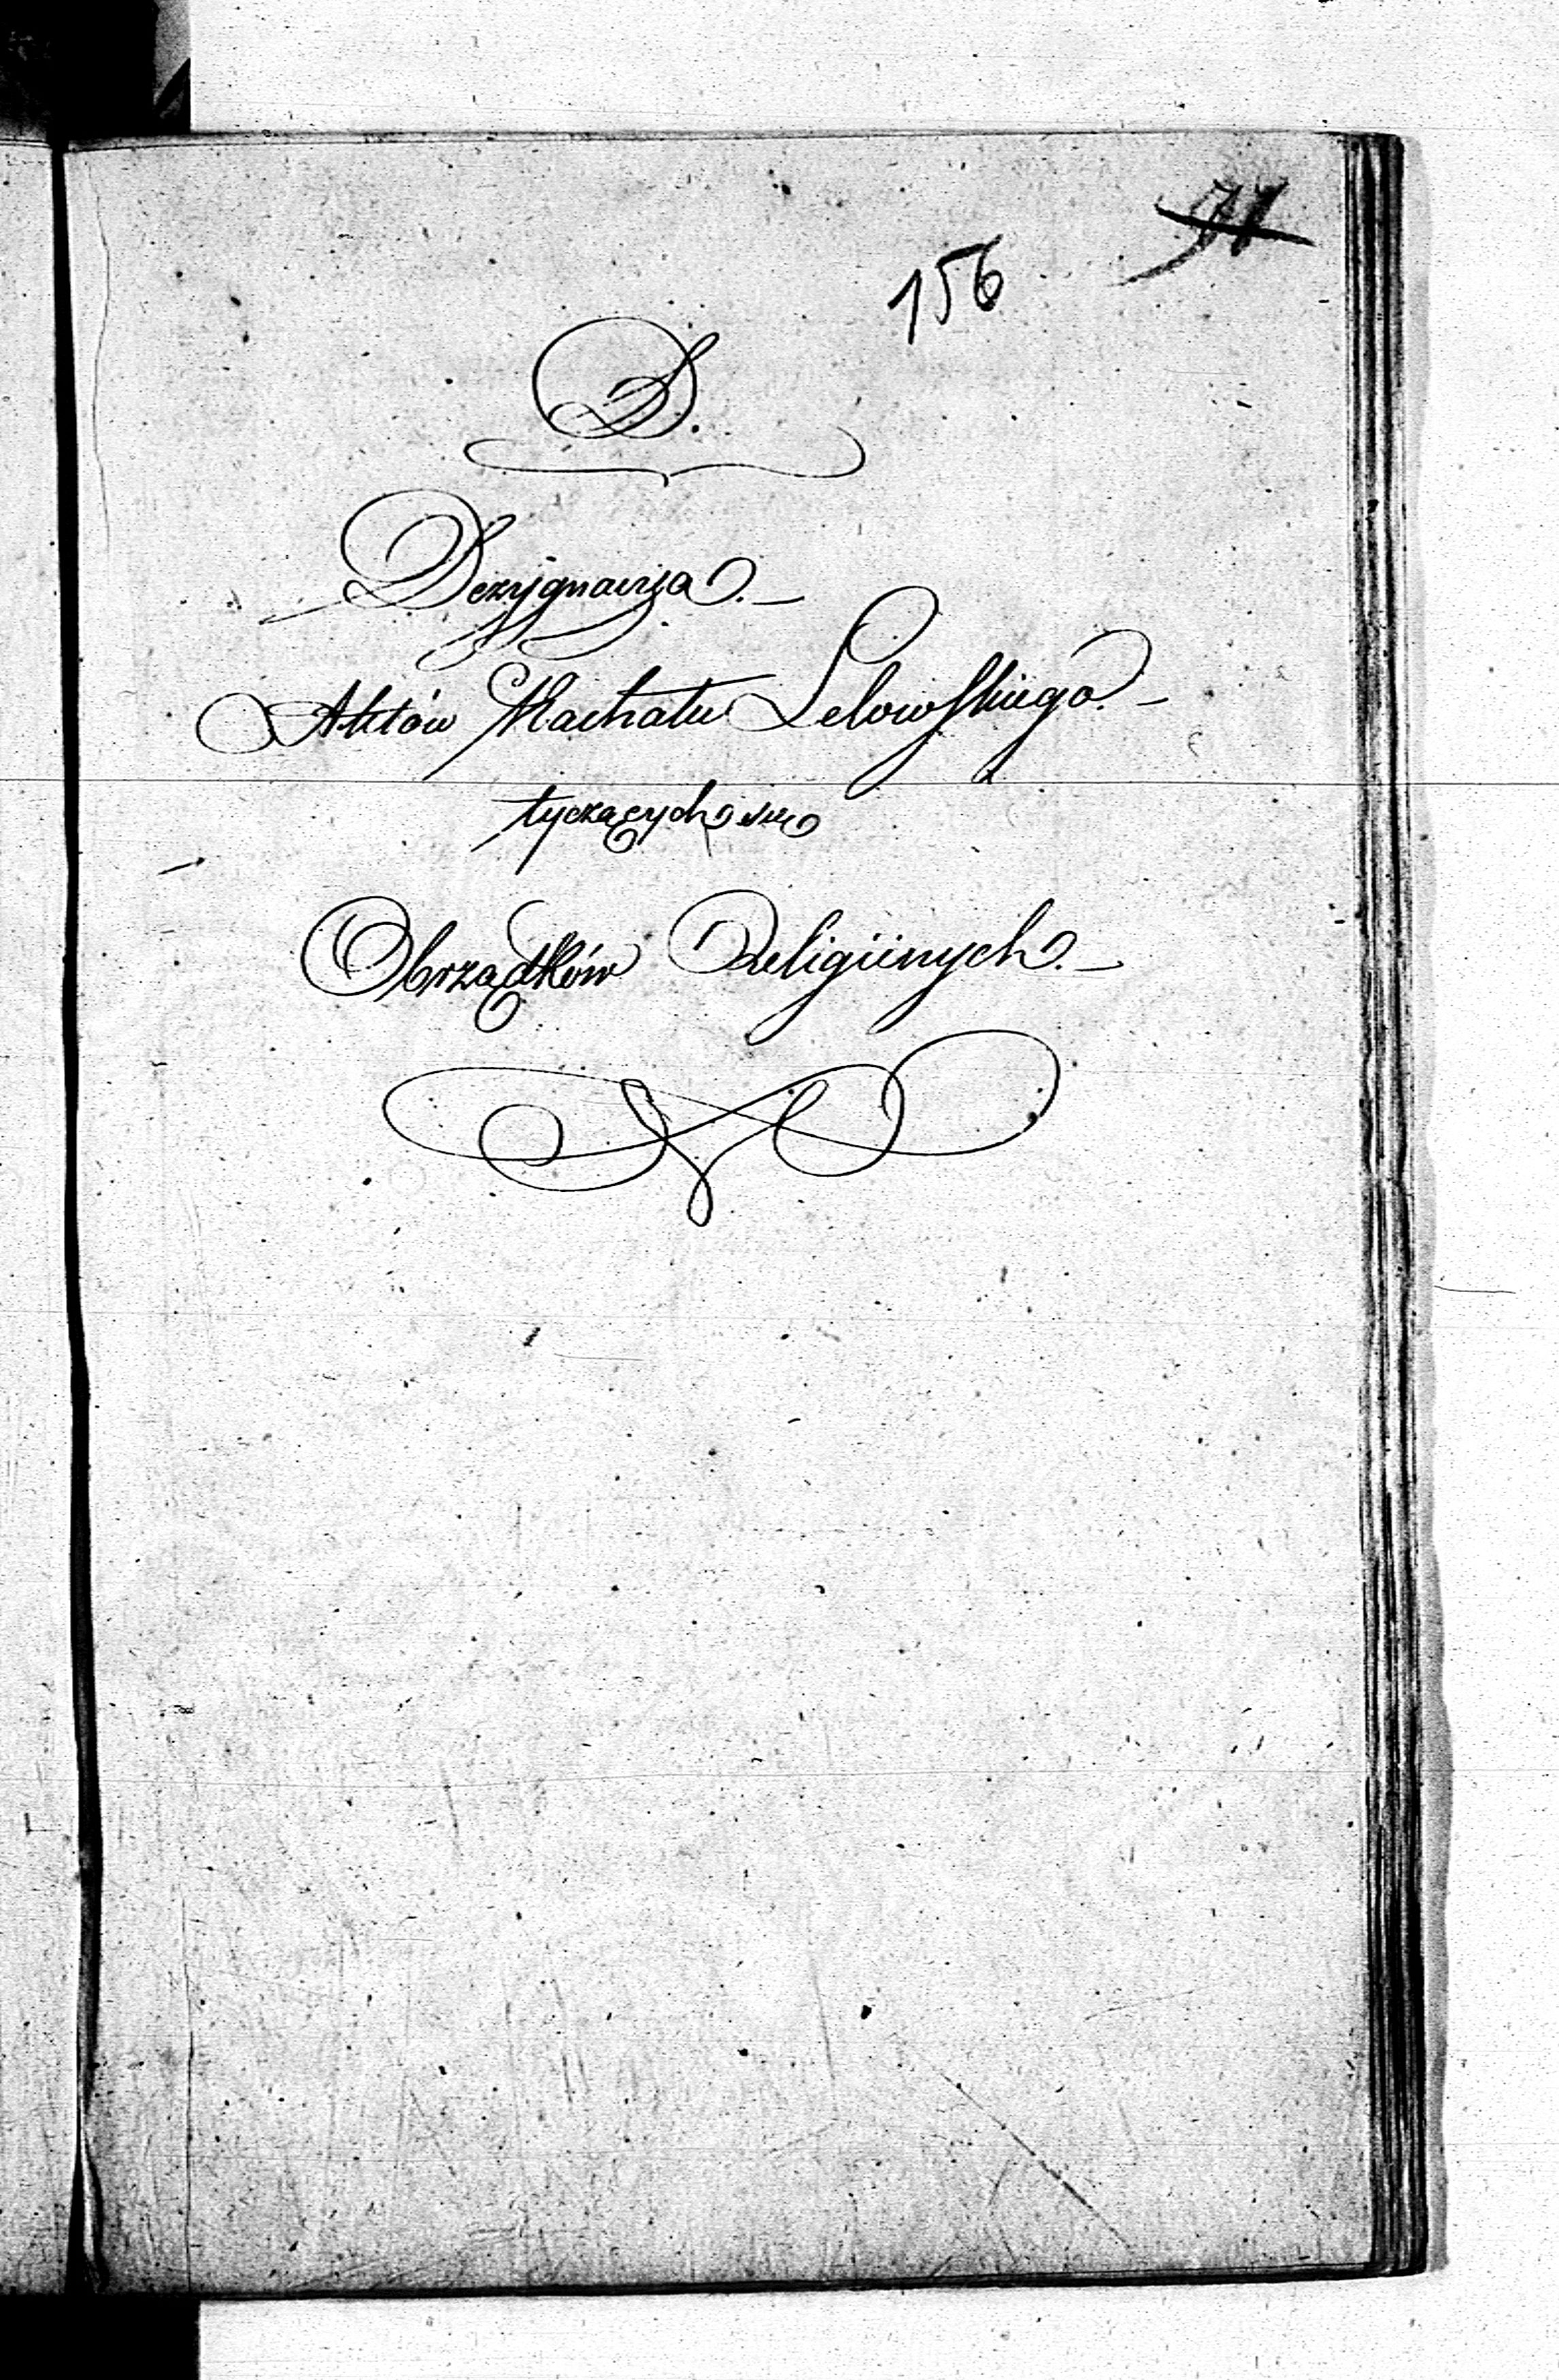 156
D.
Dezygnacyja. —
Aktów Machatu Lelowskiego. —
tyczących się
Obrządków Religiinych. —